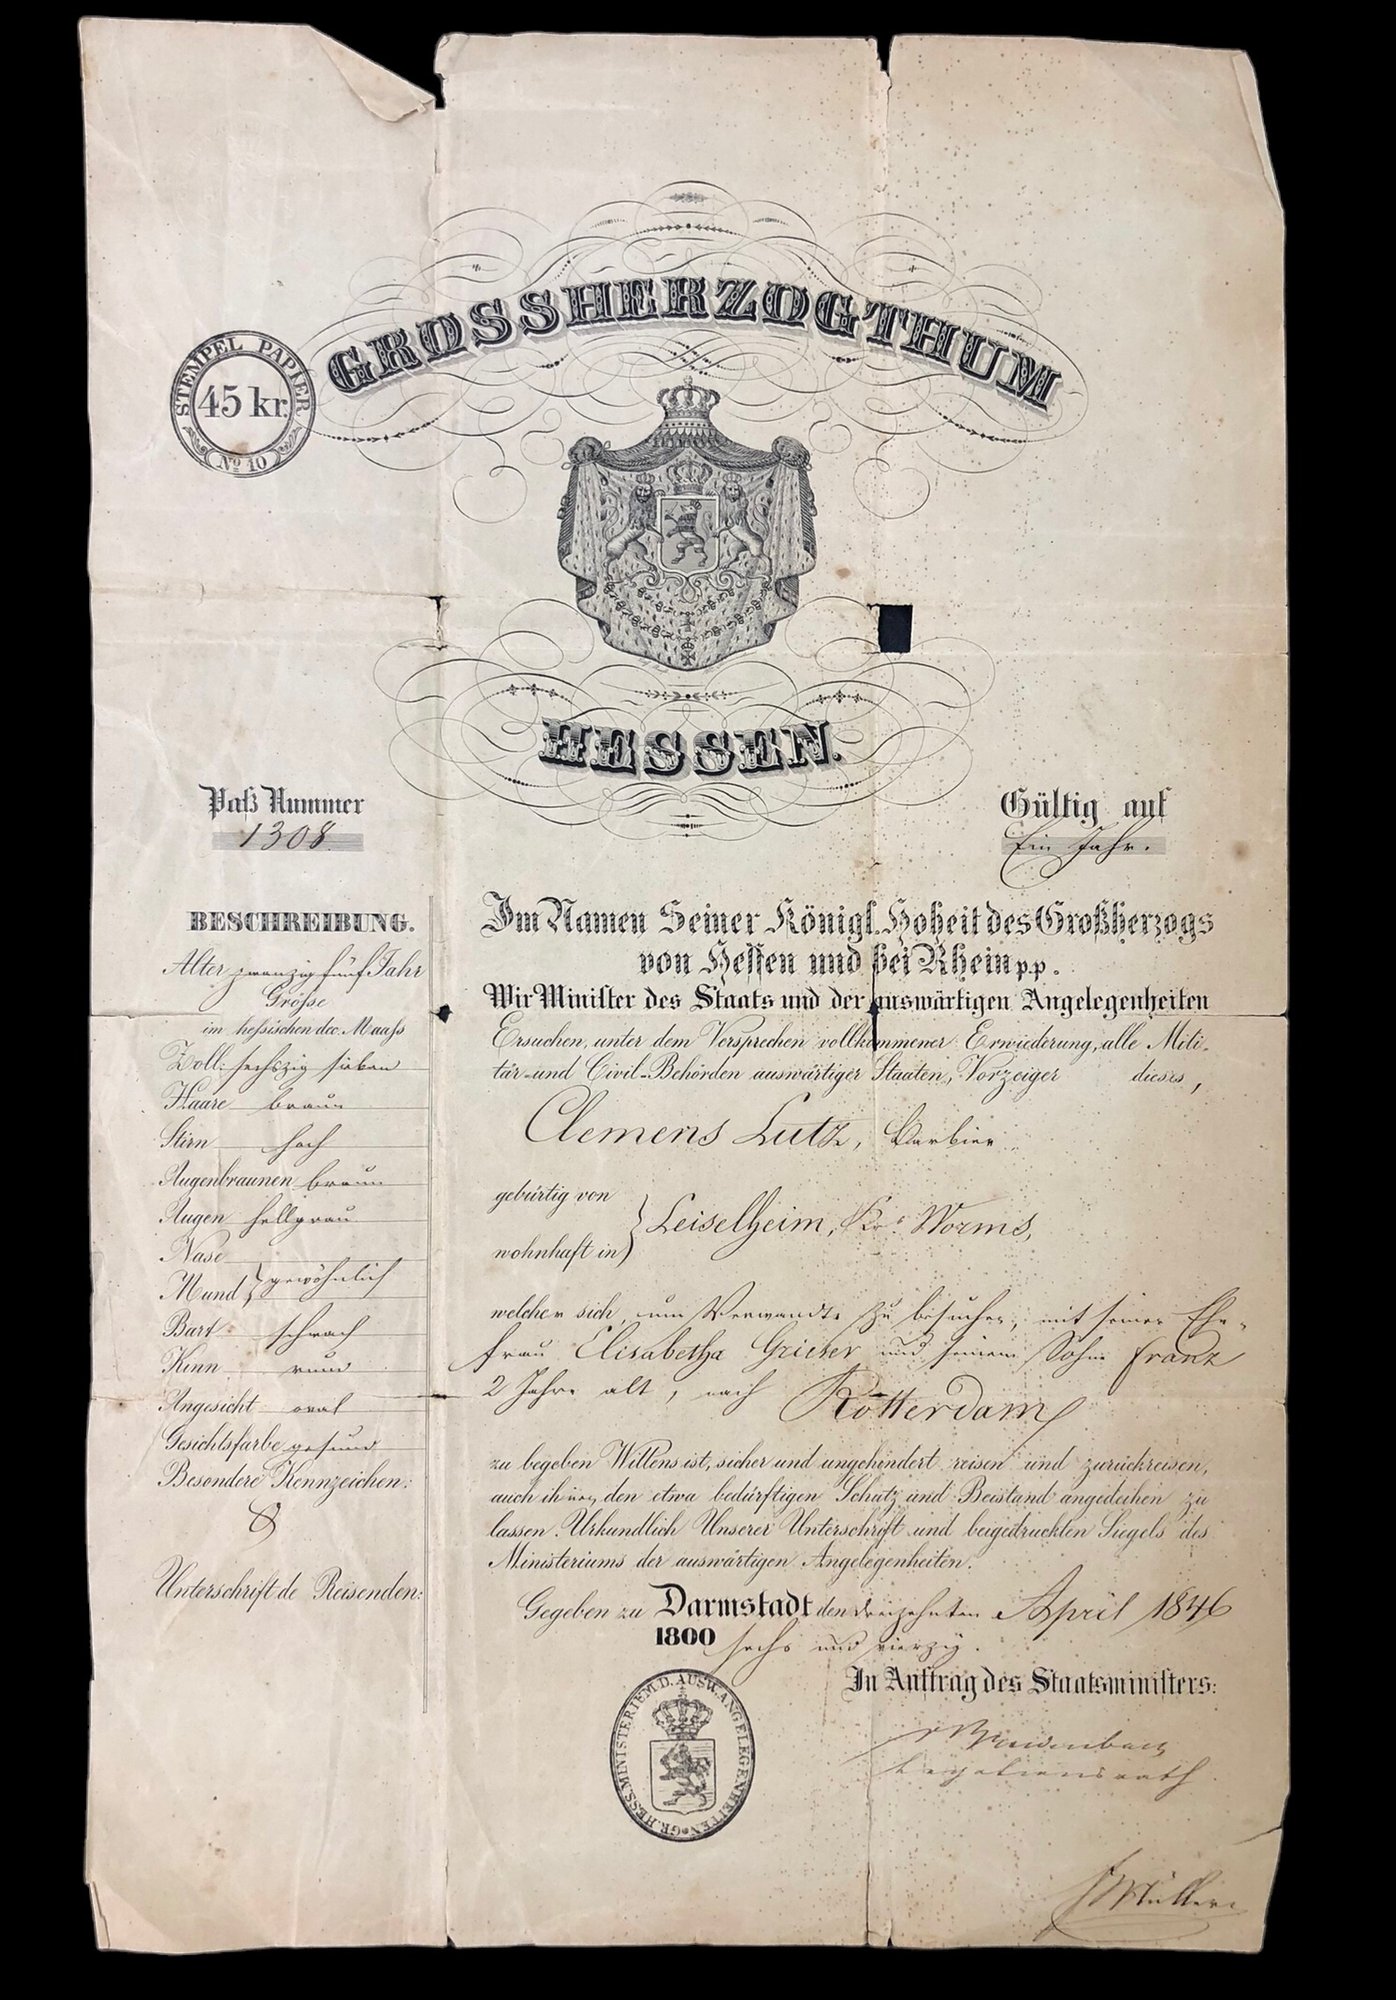 GROSSHERZOGTHUM
STEMPEL PAPIER
45 kr.
No 10
HESSEN.
Paß Nummer
1308
Gültig auf
Ein Jahr.
BESCHREIBUNG.
Alter zwanzig fünf Jahr
Grösse
im hessischen dec. Maass
Zoll: sechszig sieben
Haare braun
Stirn hoch
Augenbraunen braun
Augen hellgrau
Nase
Mund } gewöhnlich
Bart schwach
Kinn rund
Angesicht oval
Gesichtsfarbe gesund
Besondere Kennzeichen:
Unterschrift de Reisenden:
Im Namen Seiner Königl. Hoheit des Großherzogs
von Hessen und bei Rhein p.p.
Wir Minister des Staats und der auswärtigen Angelegenheiten
Ersuchen, unter dem Versprechen vollkommener Erwiederung, alle Mili-
tär- und Civil-Behörden auswärtiger Staaten, Vorzeiger dieses,
Clemens Lutz, Barbier
gebürtig von
wohnhaft in } Leiselheim, Krs. Worms,
welcher sich, um Verwandte zu besuchen, mit seiner Ehe-
frau Elisabetha und seinem Sohne Franz
2 Jahre alt, nach Rotterdam
zu begeben Willens ist, sicher und ungehindert reisen und zurückreisen,
auch ihnen den etwa bedürftigen Schutz und Beistand angedeihen zu
lassen. Urkundlich Unserer Unterschrift und beigedruckten Siegels des
Ministeriums der auswärtigen Angelegenheiten.
Gegeben zu Darmstadt den dreizehnten April 1846
1800 sechs und vierzig.
In Auftrag des Staatsministers:
Legationsrath
GR. HESS. MINISTERIUM D. AUSW. ANGELEGENHEITEN
Müller